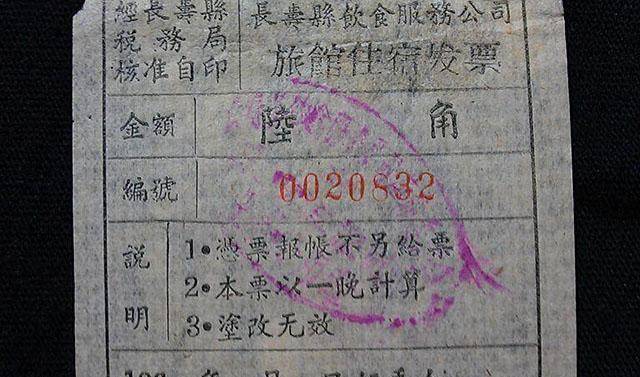 經長壽縣
稅務局
核准自印
長壽縣飲食服務公司
旅館住宿发票
金額 陸角
編號 0020832
説明
1·憑票報帳不另給票
2·本票以一晚計算
3·塗改无效